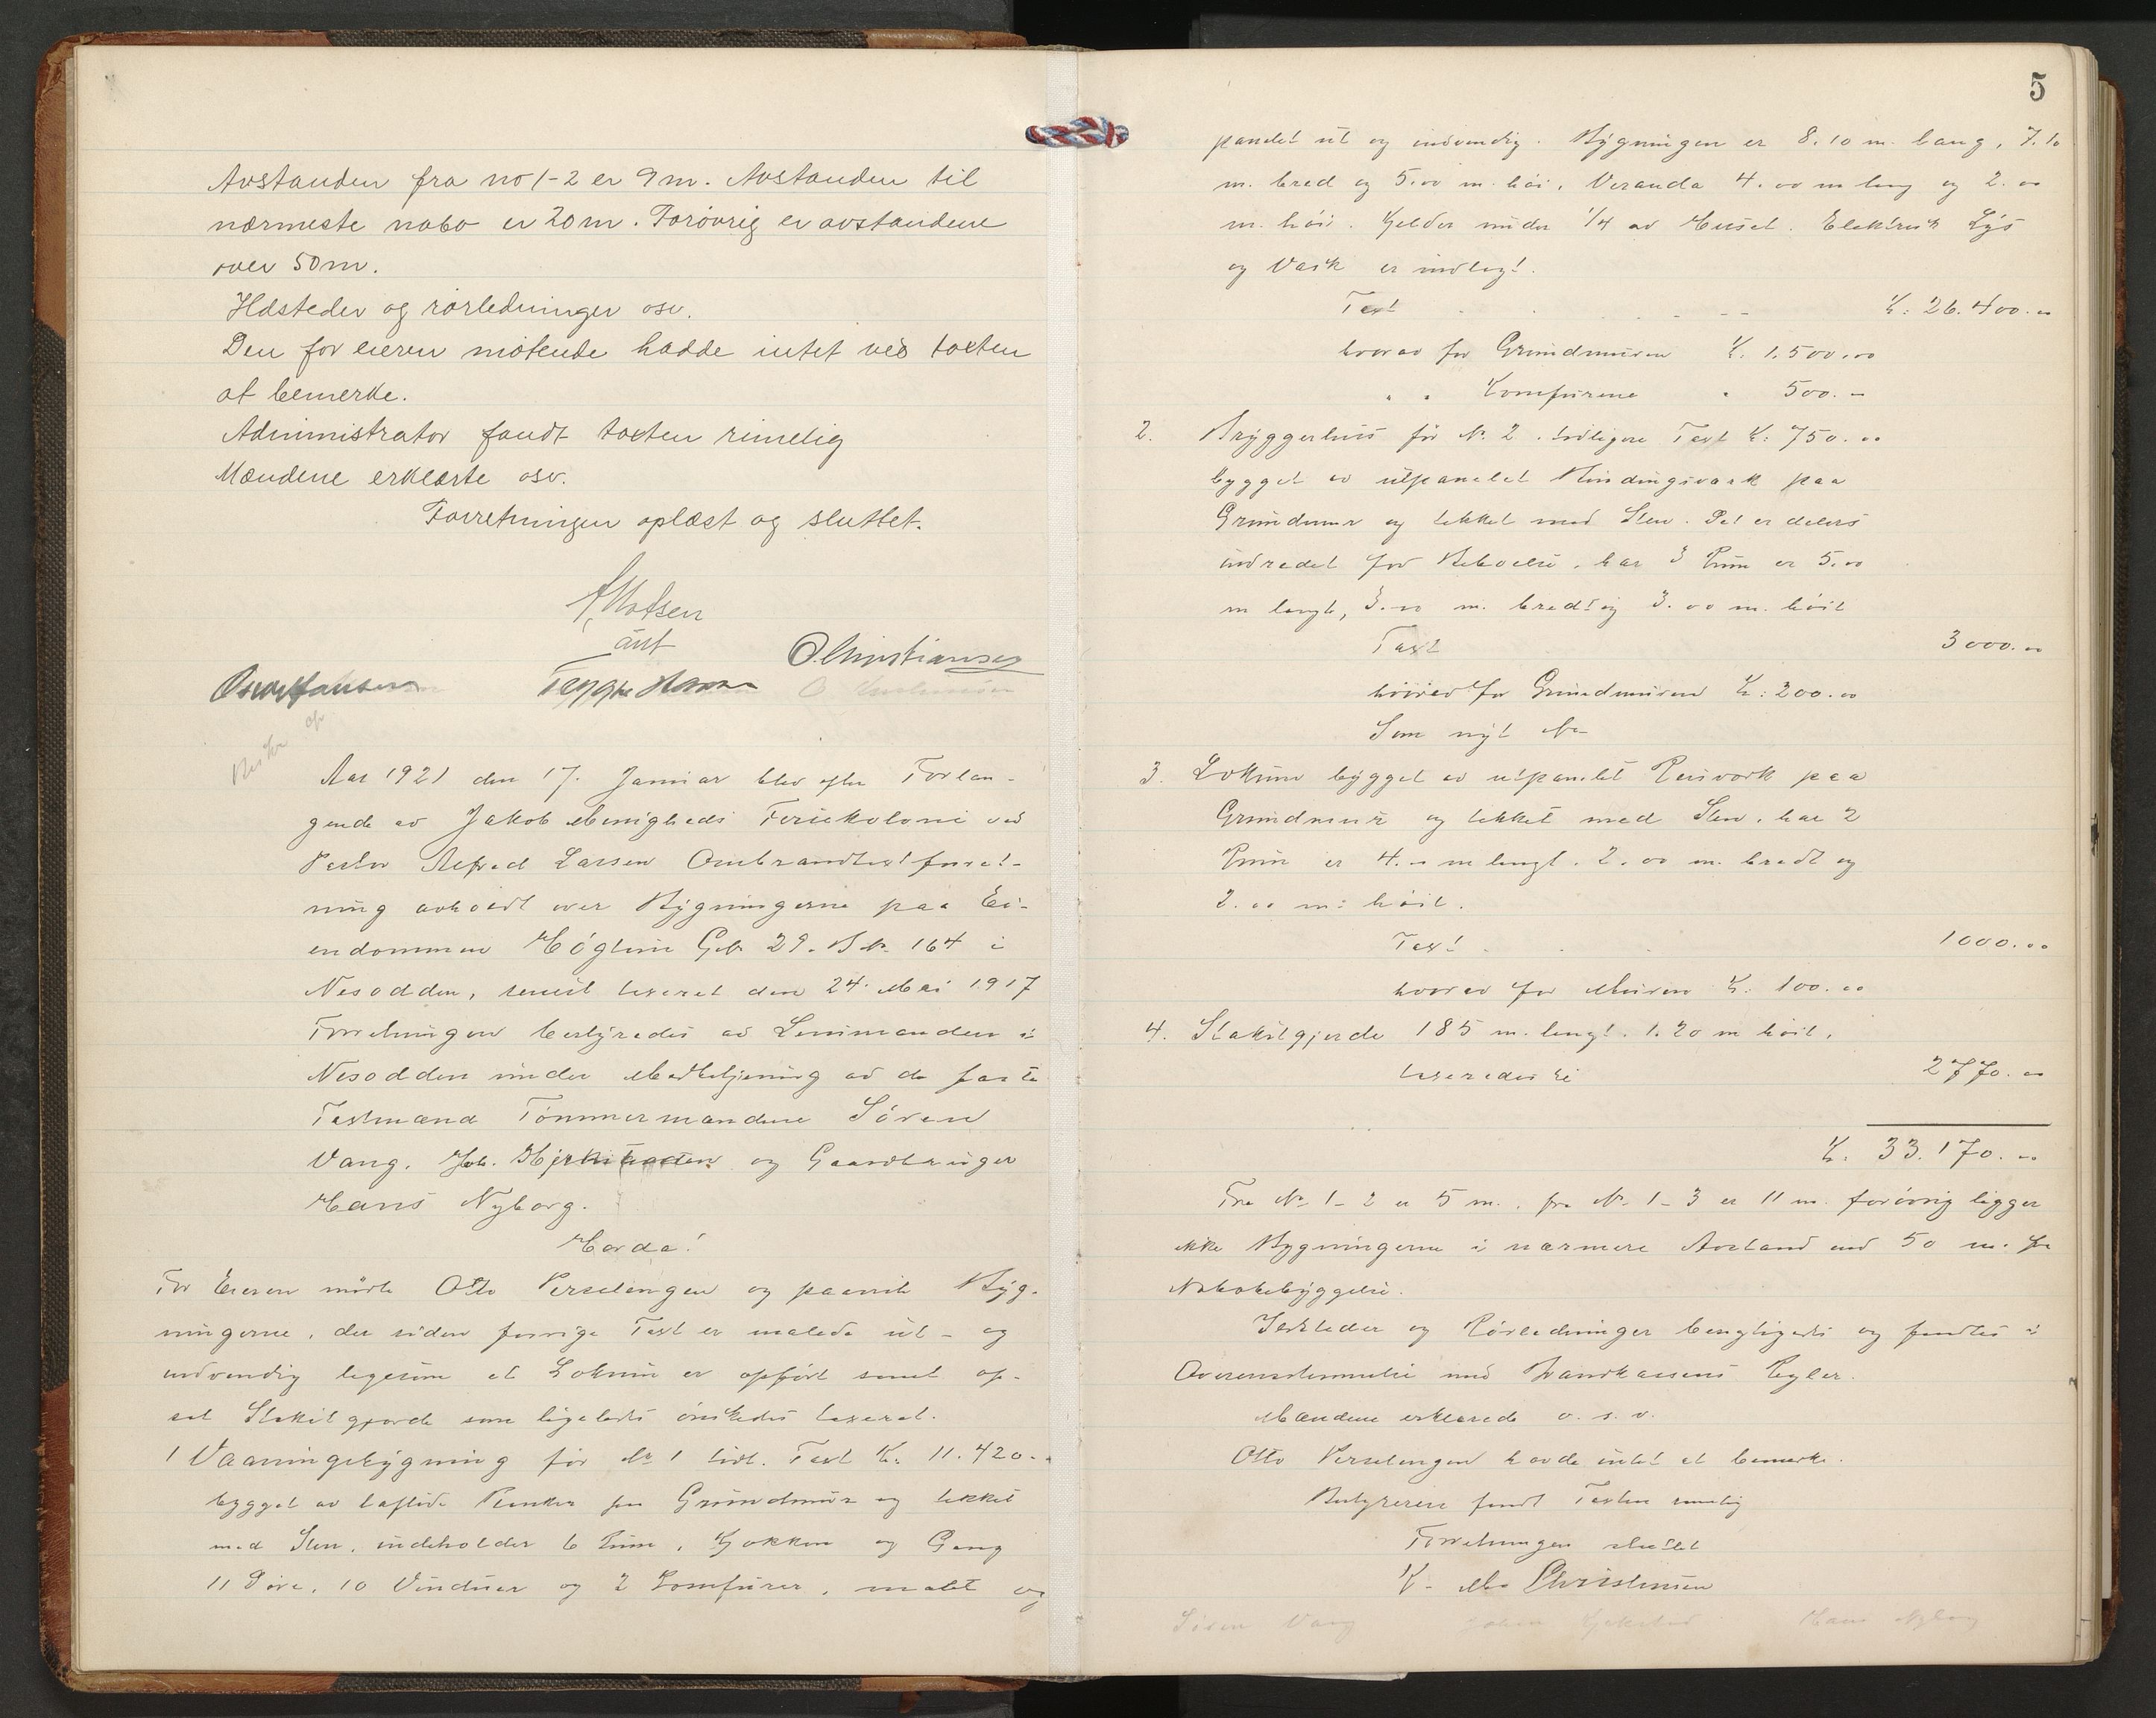 Avstanden fra no 1-2 er 9 m. Avstanden til
nærmeste nabo er 20 m. Forøvrig er avstandene
over 50 m.
Ildsteder og rørledninger osv.
Den for eieren møtende hadde intet ved taxten
at bemerke.
Administrator fandt taxten rimelig
Mændene erklærte osv.
Forretningen oplæst og sluttet.
Madsen
Christiansen
Oscar Hansen Trygve Hansen
Aar 1921 den 17. Januar blev efter Forlan-
gende av Jakob Menigheds Feriekoloni ved
Pastor Alfred Larsen Ombrandtaxtforret-
ning avholdt over Bygningerne paa Ei-
endommen Høgheim Gnr. 29. Bnr. 164 i
Nesodden, senest taxeret den 24. Mai 1917
Forretningen bestyredes av Lensmanden i
Nesodden under Medbetjening av de faste
Taxtmænd Tømmermændene Søren
Vang, Joh. og Gaardbruger
Hans Nyborg.
Hørda!
For Eieren mødte Otto Perselengen og paaviste Byg-
ningerne, der siden forrige Taxt er malede ut- og
indvendig ligesom et Lokum er opført samt op-
sat Stakitgjærde som ligeledes ønskedes taxeret.
1 Vaaningsbygning før No 1 tidl. Taxt K. 11.420.-
bygget av laftede Planker paa Grundmur og tækket
med Sten, indeholder 6 Rum, Kjøkken og Gang
11 Døre, 10 Vinduer og 2 Komfurer, malet og
5
panelet ut og indvendig. Bygningen er 8.10 m. lang, 7.10
m. bred og 5.00 m. høi. Veranda 4.00 m lang og 2.00
m. høi. Kjelder under 1/4 av Huset. Elektrisk Lys
og Vask er indlagt.
Taxt K: 26.400.00
hvorav for Grundmuren K. 1.500.00
" " Komfurene " 500.-
2. Bryggerhus før No 2. tidligere Taxt K: 750.00
bygget av utpanelet Bindingsverk paa
Grundmur og tækket med Sten. Det er delvis
indredet for Beboelse, har 3 Rum er 5.00
m langt, 3.00 m. bredt og 3.00 m. høit
Taxt 3000.00
hvorav for Grundmuren K: 200.00
Som nyt No
3. Lokum bygget av utpanelet Reisverk paa
Grundmur og tækket med Sten, har 2
Rum er 4.00 m langt. 2.00 m. bredt og
2.00 m: høit.
Taxt 1000.00
hvorav for Muren K: 100.00
4. Stakitgjerde 185 m. langt. 1.20 m høit.
taxeredes til 2770.00
K. 33.170.00
Fra No 1-2 er 5 m., fra No 1-3 er 11 m. forøvrig ligger
ikke Bygningerne i nærmere Avstand end 50 m. fra
Nabobebyggelse.
Ildsteder og Rørledninger besigtigedes og fandtes i
Overensstemmelse med Brandkassens Regler.
Mændene erklærede o. s. v.
Otto Perselengen havde intet at bemerke.
Bestyreren fandt Taxten rimelig
Forretningen sluttet
K. Christensen
Søren Vang Johan Hans Nyborg